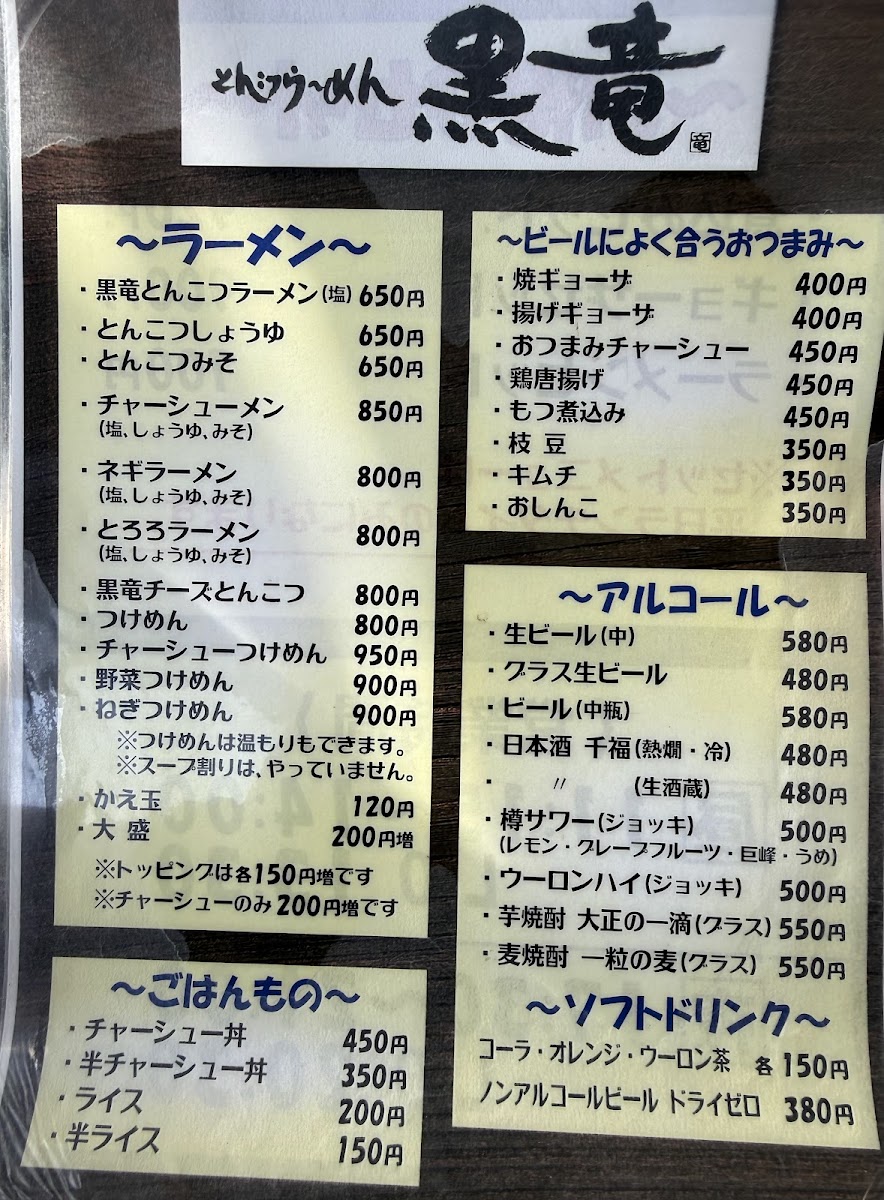 とんこつらーめん 黒竜
竜
～ラーメン～
・黒竜とんこつラーメン(塩) 650円
・とんこつしょうゆ 650円
・とんこつみそ 650円
・チャーシューメン 850円
(塩、しょうゆ、みそ)
・ネギラーメン 800円
(塩、しょうゆ、みそ)
・とろろラーメン 800円
(塩、しょうゆ、みそ)
・黒竜チーズとんこつ 800円
・つけめん 800円
・チャーシューつけめん 950円
・野菜つけめん 900円
・ねぎつけめん 900円
※つけめんは温もりもできます。
※スープ割りは、やっていません。
・かえ玉 120円
・大 盛 200円増
※トッピングは各150円増です
※チャーシューのみ200円増です
～ごはんもの～
・チャーシュー丼 450円
・半チャーシュー丼 350円
・ライス 200円
・半ライス 150円
～ビールによく合うおつまみ～
・焼ギョーザ 400円
・揚げギョーザ 400円
・おつまみチャーシュー 450円
・鶏唐揚げ 450円
・もつ煮込み 450円
・枝 豆 350円
・キムチ 350円
・おしんこ 350円
～アルコール～
・生ビール(中) 580円
・グラス生ビール 480円
・ビール(中瓶) 580円
・日本酒 千福(熱燗・冷) 480円
・ 〃 (生酒蔵) 480円
・樽サワー(ジョッキ) 500円
(レモン・グレープフルーツ・巨峰・うめ)
・ウーロンハイ(ジョッキ) 500円
・芋焼酎 大正の一滴(グラス) 550円
・麦焼酎 一粒の麦(グラス) 550円
～ソフトドリンク～
コーラ・オレンジ・ウーロン茶 各150円
ノンアルコールビール ドライゼロ 380円